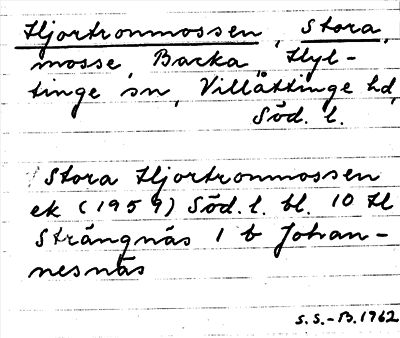 Hjortronmossen, Stora,
mosse, Barka, Hyl-
tinge sn, Villåttinge hd,
Söd. l.
Stora Hjortronmossen
ek (1959) Söd. l. bl. 10 H
Strängnäs 1 b Johan-
nesnäs
S.S.-B. 1962